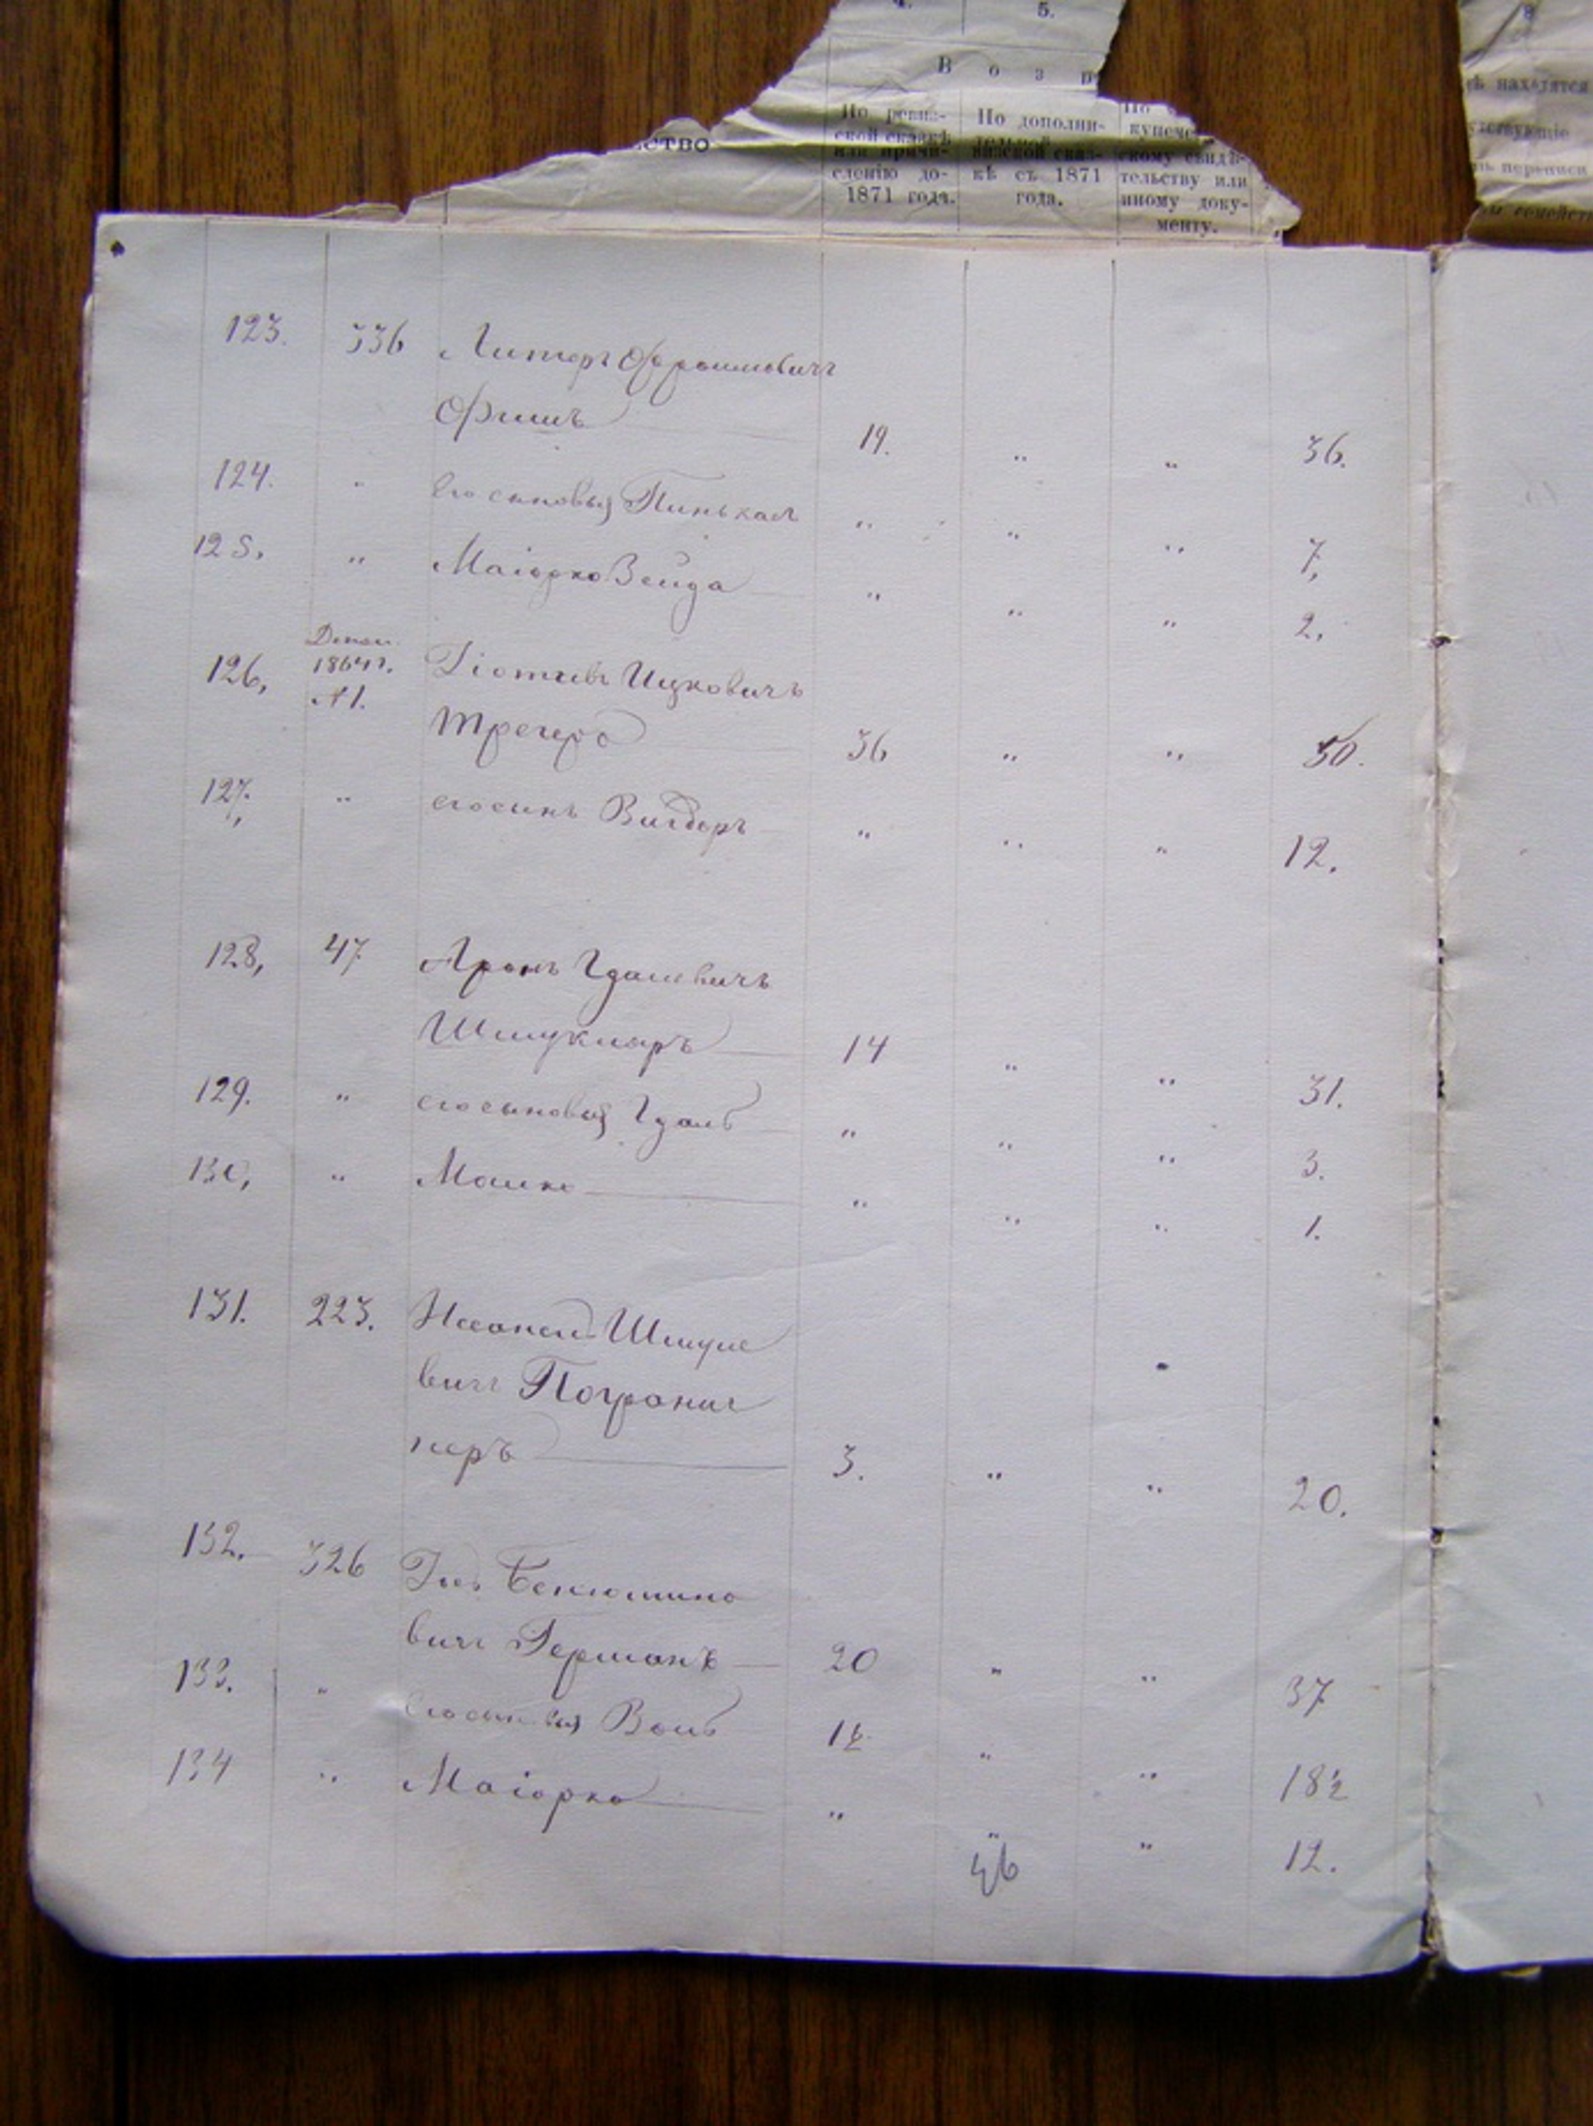 4. 5. 8
В о з р
ство
По ревиз-
ской сказкѣ
или причи-
сленію до-
1871 года.
По дополни-
тельной
визской сказ-
кѣ съ 1871
года.
купече
скому свидѣ-
тельству или
иному доку-
менту.
находятся
утствующіе
переписи
семейст
123. 336 Литеръ Офроимовичъ
Фишъ 19. „ „ 36.
124. „ его сыновья Пинькасъ „ „ „ 7,
125. „ Маіорко Зейда „ „ „ 2,
126, Допол. 1864 г. №1. Ицковичъ
Трегеръ 36 „ „ 50.
127, „ его сынъ Вигдоръ „ „ „ 12.
128, 47 Аронъ Гдалевичъ
Шмукляръ 14 „ „ 31.
129. „ его сыновья Гдаль „ „ „ 3.
130, „ Мошко „ „ „ 1.
131. 223. Шмуле
вичъ Погранич
неръ 3. „ „ 20.
132. 326 Бенюмино
вичъ Германъ 20 „ „ 37
133. „ его сыновья Воль „ „ 18½
134 „ Маіорко „ „ „ 12.